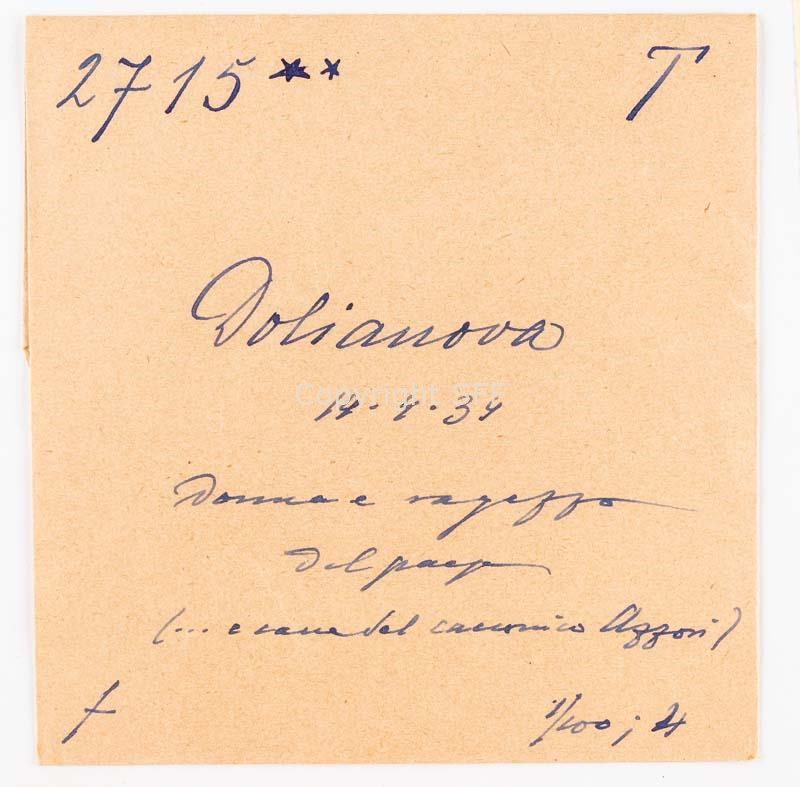 2715** T
Dolianova
Copyright
14.4.34
Donna e ragazzo
del paese
(... e cane del canonico Azzori)
f 1/100; 4